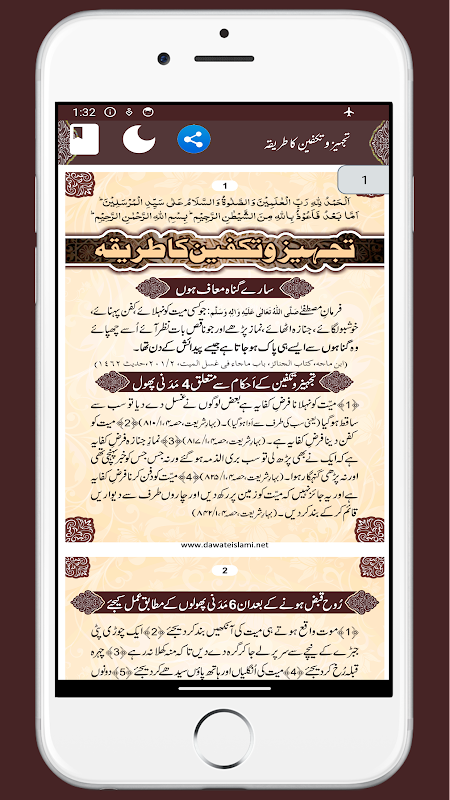 1:32
تجہیز و تکفین کا طریقہ
1
1
اَلْحَمْدُ لِلّٰهِ رَبِّ الْعٰلَمِیْنَ وَالصَّلٰوةُ وَالسَّلَامُ عَلٰی سَیِّدِ الْمُرْسَلِیْنَ ؕ
اَمَّا بَعْدُ فَاَعُوْذُ بِاللّٰهِ مِنَ الشَّیْطٰنِ الرَّجِیْمِ ؕ بِسْمِ اللّٰهِ الرَّحْمٰنِ الرَّحِیْمِ ؕ
تجہیز و تکفین کا طریقہ
سارے گناہ معاف ہوں
فرمانِ مصطفےٰ صَلَّی اللهُ تَعَالٰی عَلَیْهِ وَاٰلِهٖ وَسَلَّم: جو کسی میت کو نہلائے، کفن پہنائے،
خوشبو لگائے، جنازہ اٹھائے، نماز پڑھے اور جو ناقص بات نظر آئے اُسے چھپائے
وہ گناہوں سے ایسے ہی پاک ہو جاتا ہے جیسے پیدائش کے دن تھا۔
(ابن ماجه، كتاب الجنائز، باب ماجاء فى غسل الميت، ٢٠١/٢، حديث ١٤٦٢)
تجہیز و تکفین کے اَحکام سے متعلق 4 مَدَنی پھول
﴿1﴾ میّت کو نہلانا فرضِ کفایہ ہے بعض لوگوں نے غسل دے دیا تو سب سے
ساقط ہوگیا (یعنی سب کی طرف سے ادا ہوگیا)۔ (بہارِ شریعت، حصہ۴، ۱/۸۱۰) ﴿2﴾ میت کو
کفن دینا فرضِ کفایہ ہے۔ (بہارِ شریعت، حصہ۴، ۱/) ﴿3﴾ نمازِ جنازہ فرضِ کفایہ
ہے کہ ایک نے بھی پڑھ لی تو سب بری الذمہ ہو گئے ورنہ جس جس کو خبر پہنچی تھی
اور نہ پڑھی گنہگار ہوا۔ (بہارِ شریعت، حصہ۴، ۱/۸۲۵) ﴿4﴾ میّت کو دفن کرنا فرضِ کفایہ
ہے اور یہ جائز نہیں کہ میّت کو زمین پر رکھ دیں اور چاروں طرف سے دیواریں
قائم کر کے بند کر دیں۔ (بہارِ شریعت، حصہ۴، ۱/۸۴۲)
www.dawateislami.net
2
رُوح قبض ہونے کے بعد ان 6 مَدَنی پھولوں کے مطابق عمل کیجئے
﴿1﴾ موت واقع ہوتے ہی میت کی آنکھیں بند کر دیجئے ﴿2﴾ ایک چوڑی پٹی
جبڑے کے نیچے سے سر پر لے جا کر گرہ دے دیں تاکہ منہ کھلا نہ رہے ﴿3﴾ چہرہ
قبلہ رُخ کر دیجئے ﴿4﴾ میت کی اُنگلیاں اور ہاتھ پاؤں سیدھے کر دیجئے ﴿5﴾ دونوں